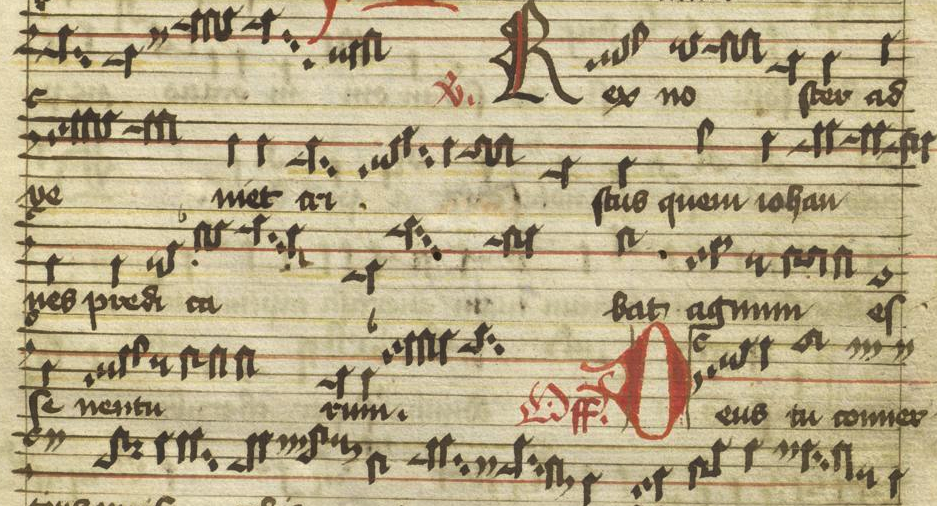 ℣. Rex no ster ad
ve niet cri stus quem iohan
nes predi ca bat agnum es
se ventu rum.
Off. Deus tu conver